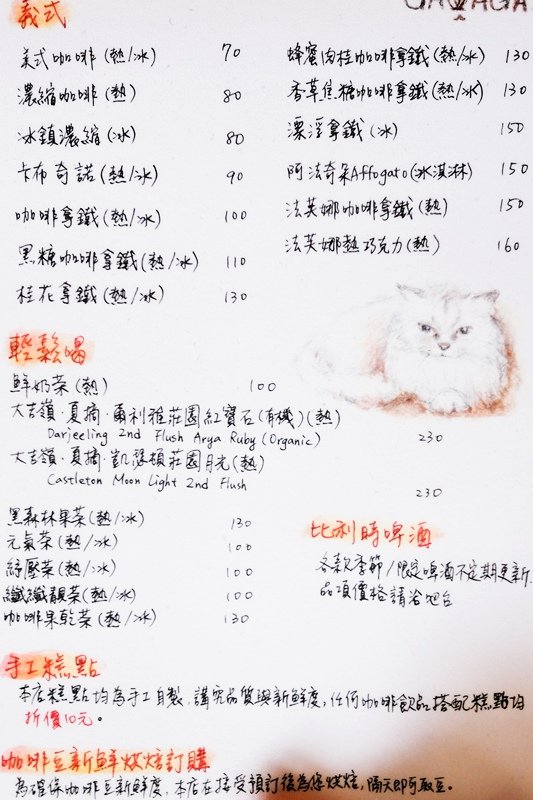 義式
美式咖啡(熱/冰) 70
濃縮咖啡(熱) 80
冰鎮濃縮(冰) 80
卡布奇諾(熱/冰) 90
咖啡拿鐵(熱/冰) 100
黑糖咖啡拿鐵(熱/冰) 110
桂花拿鐵(熱/冰) 130
蜂蜜肉桂咖啡拿鐵(熱/冰) 130
香草焦糖咖啡拿鐵(熱/冰) 130
漂浮拿鐵(冰) 150
阿法奇朵Affogato(冰淇淋) 150
法芙娜咖啡拿鐵(熱) 150
法芙娜熱巧克力(熱) 160
輕鬆喝
鮮奶茶(熱) 100
大吉嶺·夏摘·爾利雅莊園紅寶石(有機)(熱)
Darjeeling 2nd Flush Arya Ruby (Organic) 230
大吉嶺·夏摘·凱瑟頓莊園月光(熱)
Castleton Moon Light 2nd Flush 230
黑森林果茶(熱/冰) 130
元氣茶(熱/冰) 100
紓壓茶(熱/冰) 100
纖纖靚茶(熱/冰) 100
咖啡果乾茶(熱/冰) 130
比利時啤酒
各款季節/限定啤酒不定期更新
品項價格請洽吧台
手工糕點
本店糕點均為手工自製,講究品質與新鮮度,任何咖啡飲品搭配糕點均
折價10元。
咖啡豆新鮮烘焙訂購
為確保咖啡豆新鮮度,本店在接受預訂後為您烘焙,隔天即可取豆。